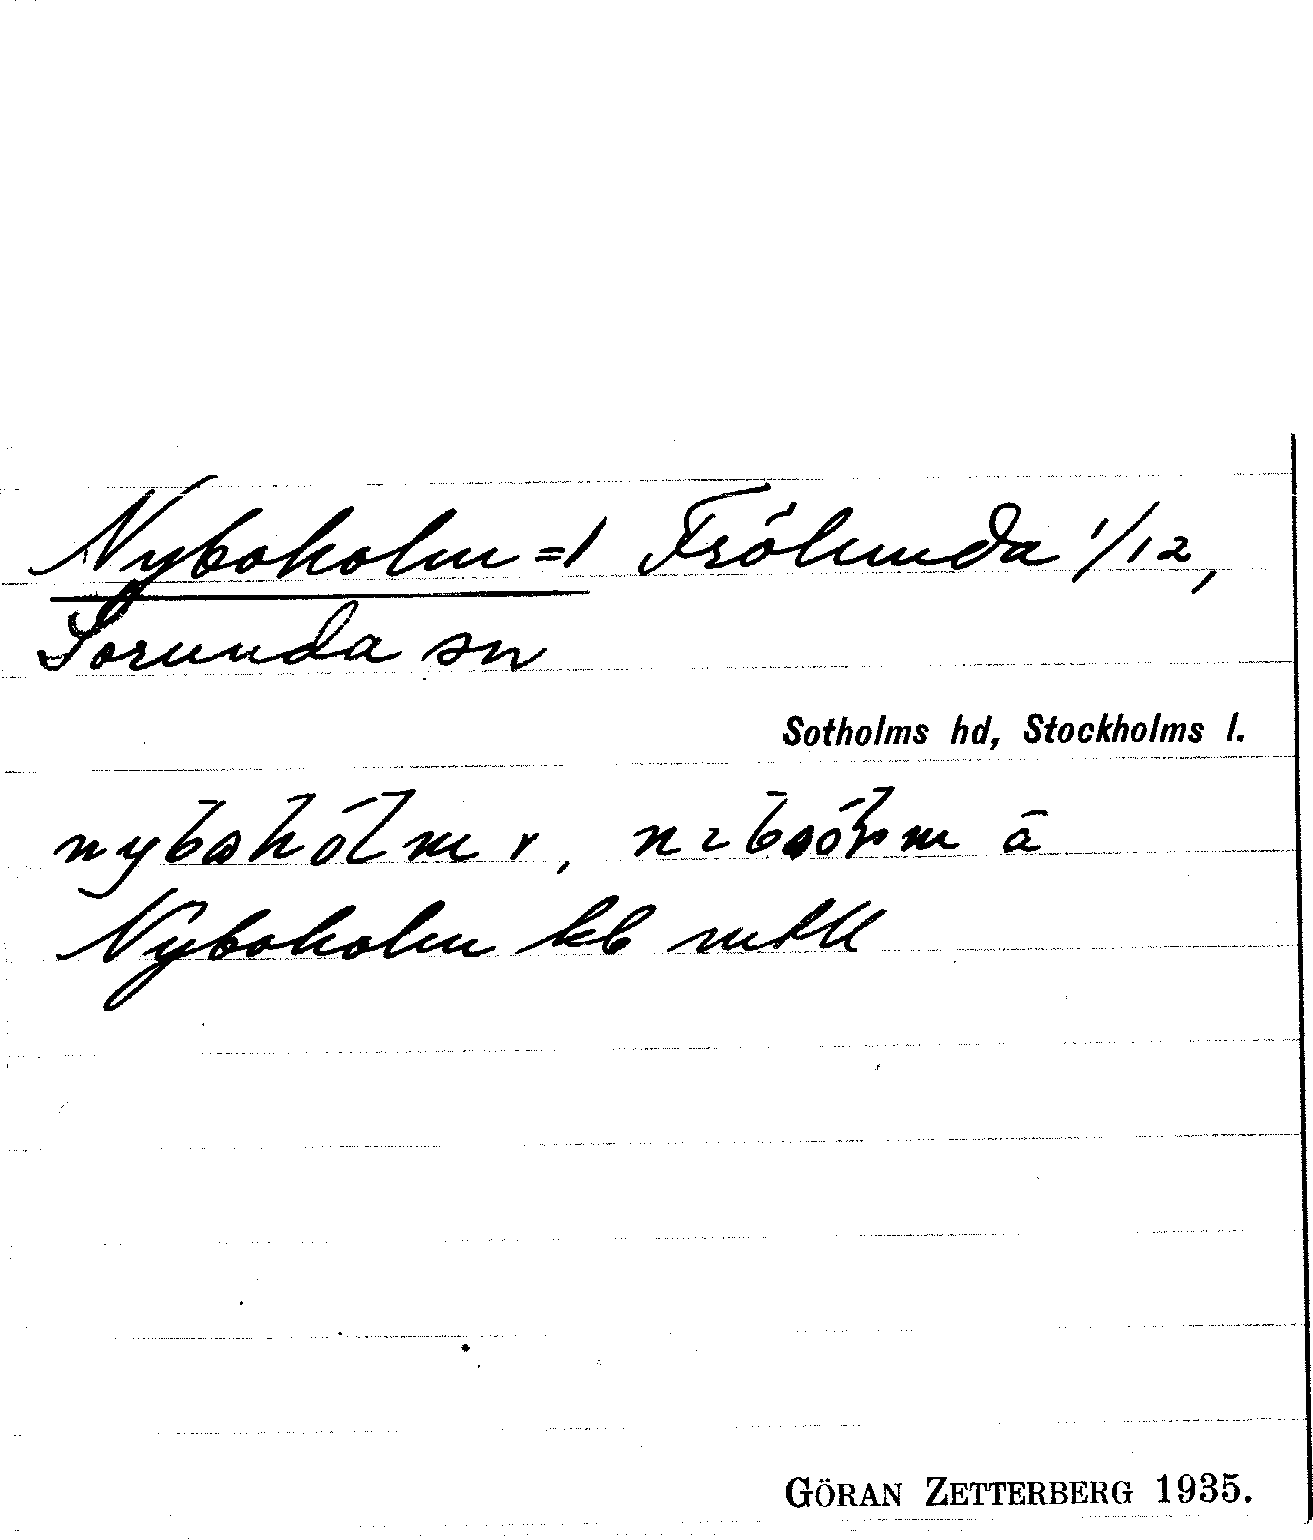 Nyboholm = 1 Frölunda 1/12,
Sorunda sn
Sotholms hd, Stockholms l.
nyboholm r, ä
Nyboholm kb mtll
GÖRAN ZETTERBERG 1935.